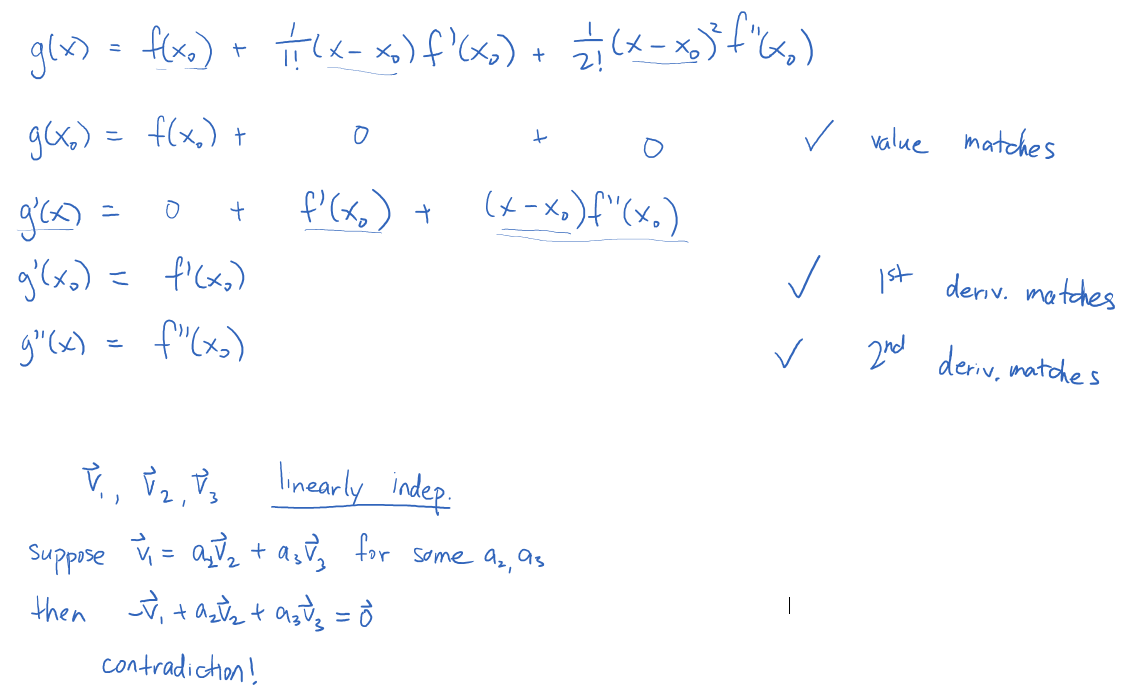 g(x) = f(x₀) + 1/1! (x − x₀) f'(x₀) + 1/2! (x − x₀)² f''(x₀)
g(x₀) = f(x₀) + 0 + 0 ✓ value matches
g'(x) = 0 + f'(x₀) + (x − x₀) f''(x₀)
g'(x₀) = f'(x₀) ✓ 1st deriv. matches
g''(x) = f''(x₀) ✓ 2nd deriv. matches
v⃗₁, v⃗₂, v⃗₃ linearly indep.
suppose v⃗₁ = a₂v⃗₂ + a₃v⃗₃ for some a₂, a₃
then −v⃗₁ + a₂v⃗₂ + a₃v⃗₃ = 0⃗
contradiction!